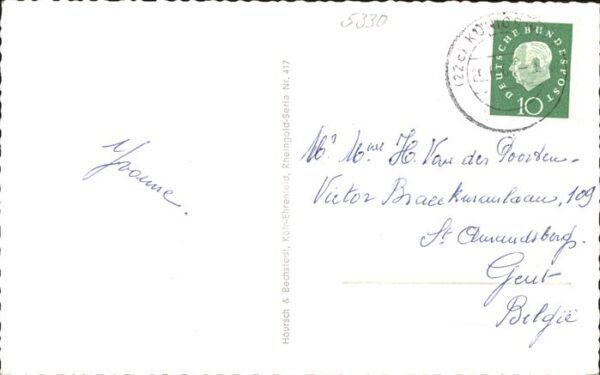 5330
(22c) KÖNIGS
DEUTSCHE BUNDESPOST
10
Yvonne.
Hoursch & Bechstedt, Köln-Ehrenfeld, Rheingold-Serie Nr. 417
Mr Mme H. Van der Poorten-
Victor Braeckmanlaan, 109
St. Amandsberg.
Gent
België